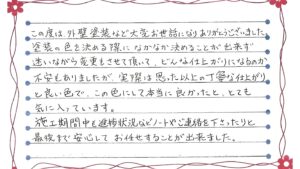 この度は外壁塗装など大変お世話になりありがとうございました。
塗装の色を決める際になかなか決めることが出来ず
迷いながら変更もさせて頂いて、どんな仕上がりになるのか
不安もありましたが、実際は思った以上の丁寧な仕上がり
と良い色で、この色にして本当に良かったと、とても
気に入っています。
施工期間中も進捗状況などノートやご連絡を下さったりと
最後まで安心してお任せすることが出来ました。